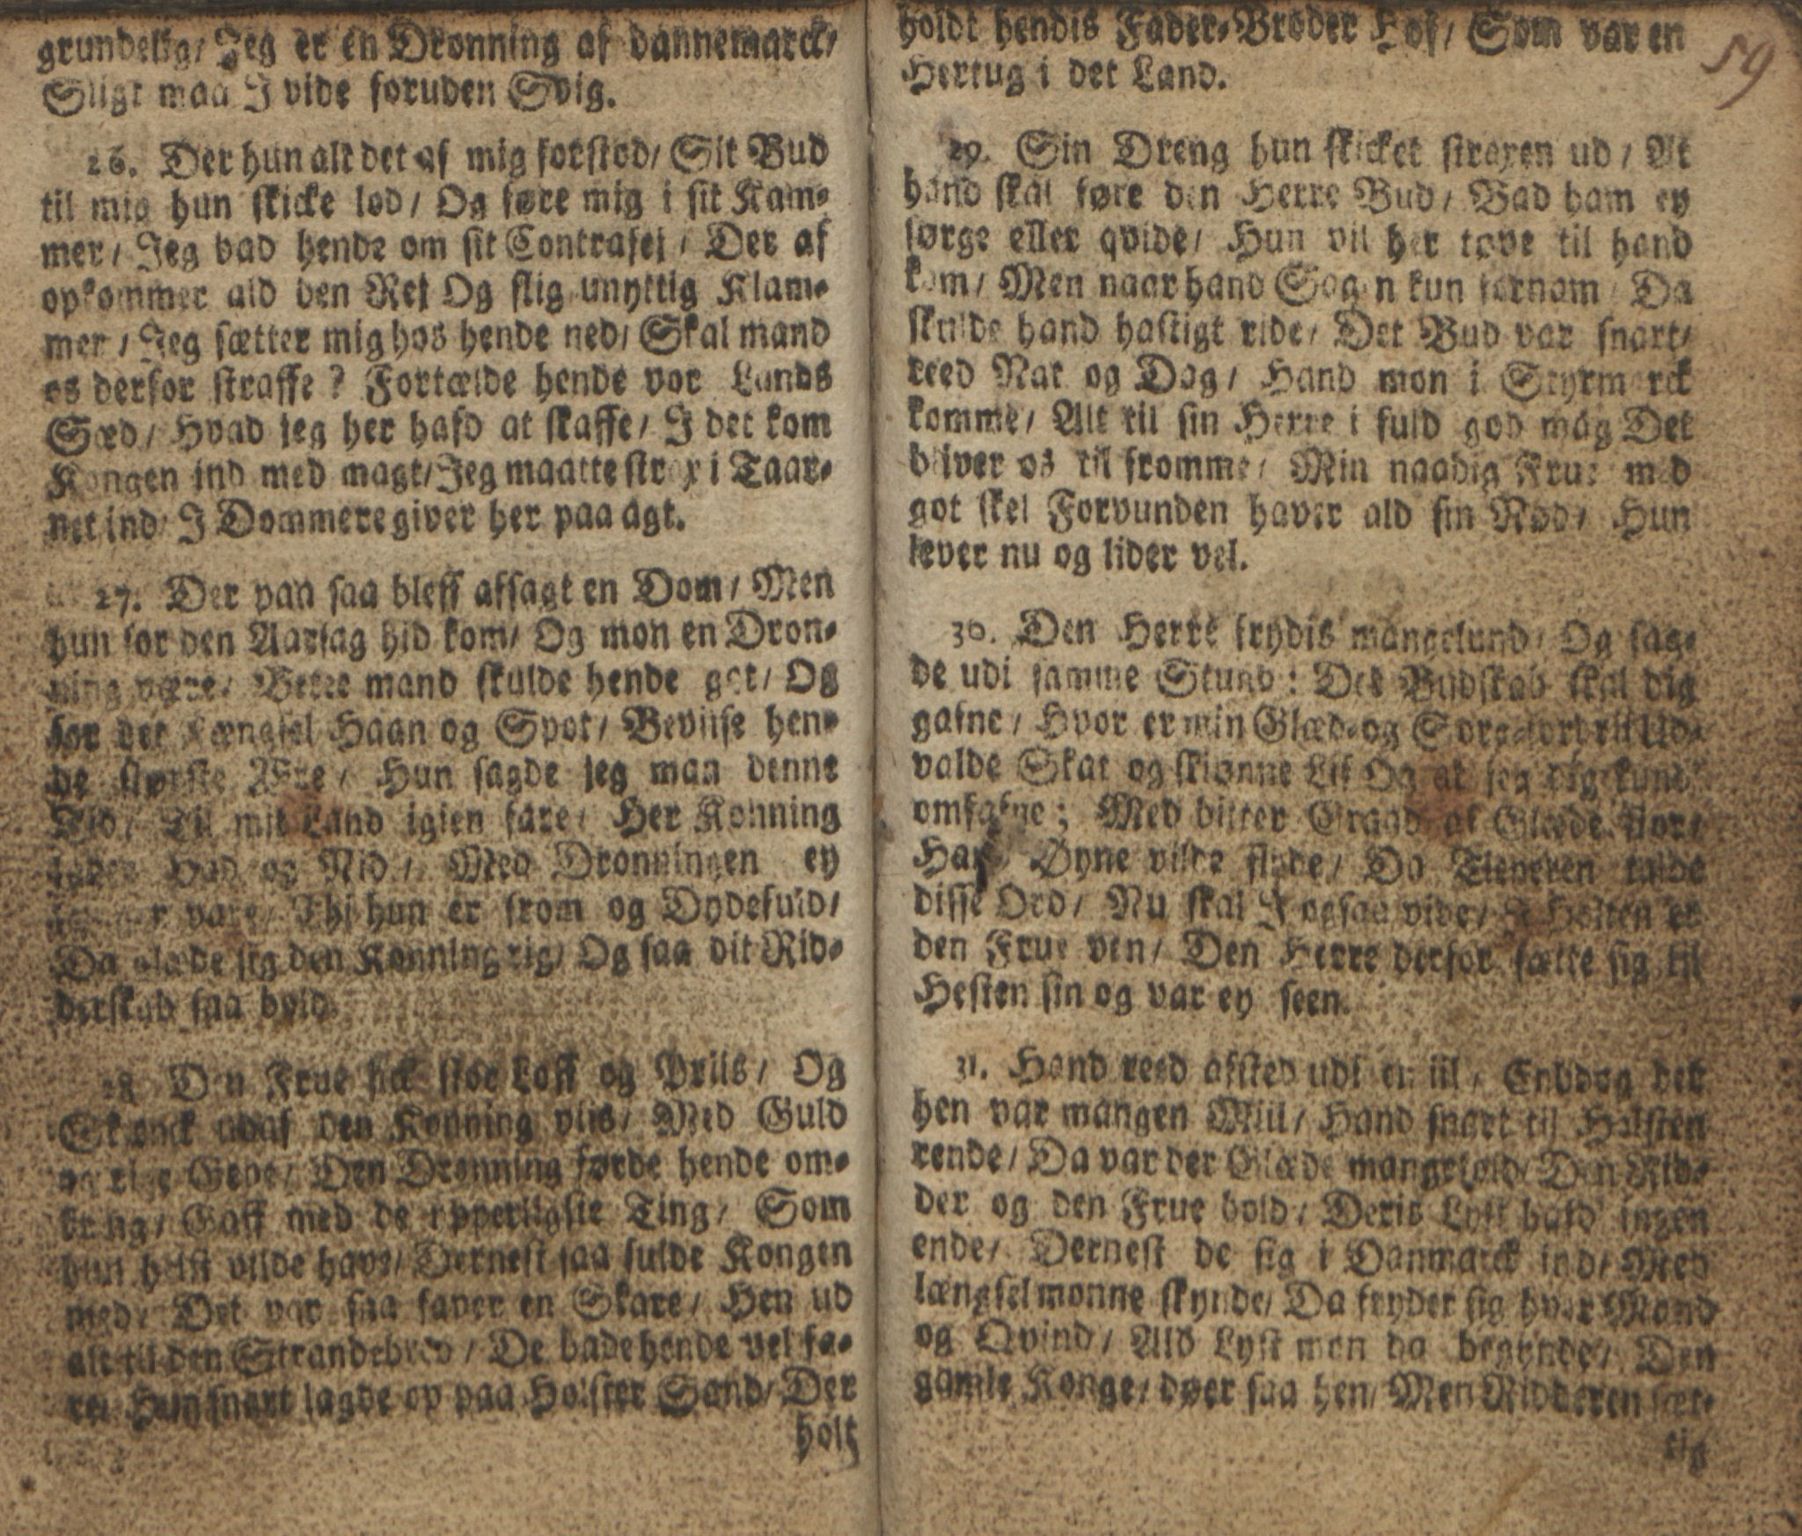 grundelig/ Jeg er en Dronning af dannemarck/
Sligt maa J vide foruden Svig.
26. Der hun alt det af mig forstod/ Sit Bud
til mig hun skicke lod/ Og føre mig i sit Kam-
mer/ Jeg bad hende om sit Contrafej/ Der af
opkommer ald den Rej Og slig unyttig Klam-
mer/ Jeg sætter mig hos hende ned/ Skal mand
os derfor straffe? Fortælde hende vor Lands
Sæd/ Hvad jeg her hafd at skaffe/ J det kom
Kongen ind med magt/ Jeg maatte strax i Taar-
net ind/ J Dommere giver her paa agt.
27. Der paa saa bleff afsagt en Dom/ Men
hun for den Aarsag hid kom/ Og mon en Dron-
ning være/ Betee mand skulde hende got/ Og
for det Længsel Haan og Spot/ Beviise hen-
de største Ære/ Hun sagde jeg maa denne
Tid/ Til mit Land igien fare/ Her Konning
Had og Nid/ Med Dronningen ey
vare/ Thi hun er from og Dydefuld/
Da glæde sig den Konning rig/ Og saa dit Rid-
derskab saa hyld.
28. Den Frue fick stor Loff og Priis/ Og
Skænck udaf den Konning viis/ Med Guld
og rige Gave/ Den Dronning førde hende om-
kring/ Gaff med de ypperligste Ting/ Som
hun helst vilde have/ Dernest saa fulde Kongen
med/ Det var saa faver en Skare/ Hen ud
alt til den Strandebred/ De bade hende vel fa-
re/ Hun snart lagde op paa Holster Sand/ Der
holt
holdt hendis Fader-Broder Hof/ Som var en
Hertug i det Land.
59
29. Sin Dreng hun skicket straxen ud/ At
hand skal føre den Herre Bud/ Bad ham ey
sørge eller qvide/ Hun vil her tøve til hand
kom/ Men naar hand Sagen kun fornam/ Da
skulde hand hastigt ride/ Det Bud var snart/
reed Nat og Dag/ Hand mon i Styrmarck
komme/ Alt til sin Herre i fuld god mag Det
bliver os til fromme/ Min naadig Frue med
got skel Forvunden haver ald sin Nød/ Hun
lever nu og lider vel.
30. Den Herre frydis mangelund/ Og sag-
de udi samme Stund: Det Budskab skal dig
gafne/ Hvor er min Glæd- og Sorg-fordriff Ud-
valde Skat og skiønne Lif Og at jeg dig kund
omfafne; Med bitter Graad af Glæde stor/
Hans Øyne vilde flyde/ Da Tieneren talde
disse Ord/ Nu skal J ogsaa vide/ J Holsten er
den Frue ven/ Den Herre derfor sætte sig til
Hesten sin og var ey seen.
31. Hand reed afsted udi en iil/ Endog det
hen var mangen Miil/ Hand snart til Holsten
rende/ Da var der Glæde mangefold/ Den Rid-
der og den Frue bold/ Deris Lyst hafd ingen
ende/ Dernest de sig i Danmarck ind/ Med
længsel monne skynde/ Da fryder sig hver Mand
og Qvind/ Ald Lyst mon da begynde/ Den
gamle Konge/ døer saa hen/ Men Ridderen sæt-
tig